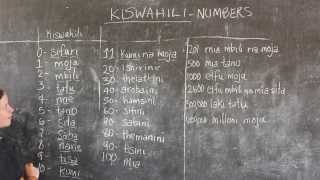 KISWAHILI - NUMBERS
Kiswahili
0- sifuri
1 - moja
2 - mbili
3 - tatu
4 - nne
5 - tano
6 - sita
7 - Saba
8 - nane
9 - tisa
10 - Kumi
11 Kumi na moja
20 - ishirini
30 - thelathini
40 - arobaini
50 - hamsini
60 - sitini
70 - sabini
80 - themanini
90 - tisini
100 - Mia
201 mia mbili na moja
500 mia tano
1000 elfu moja
laki tatu
milioni moja